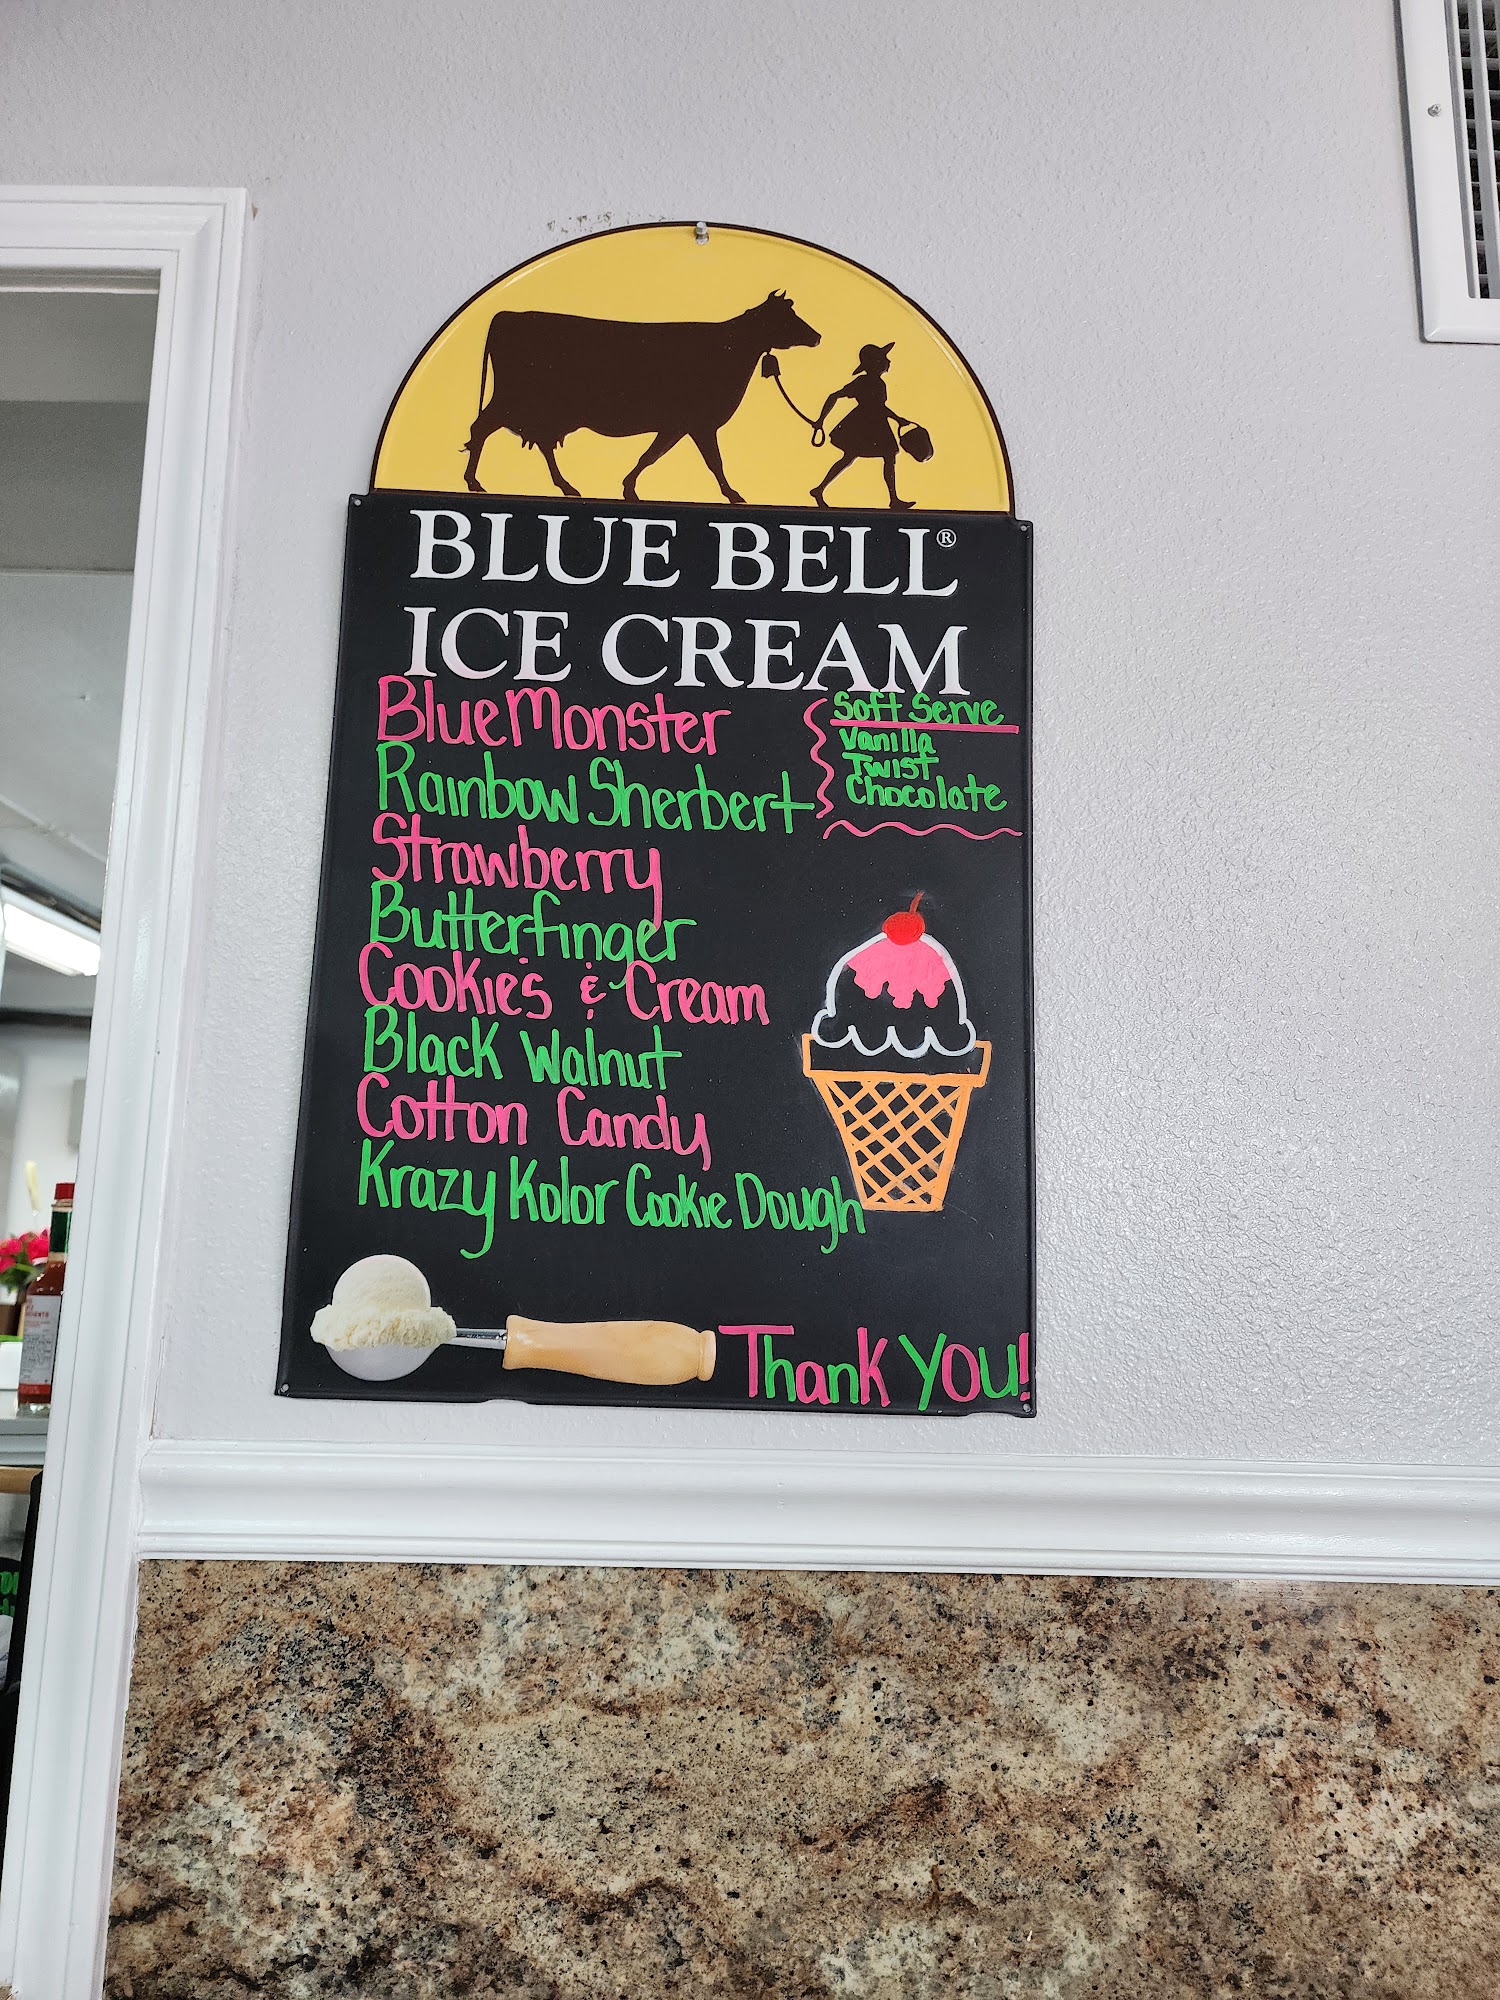 BLUE BELL®
ICE CREAM
Blue Monster
Rainbow Sherbert
Strawberry
Butterfinger
Cookies & Cream
Black Walnut
Cotton Candy
Krazy Kolor Cookie Dough
Soft Serve
Vanilla
Twist
Chocolate
Thank You!